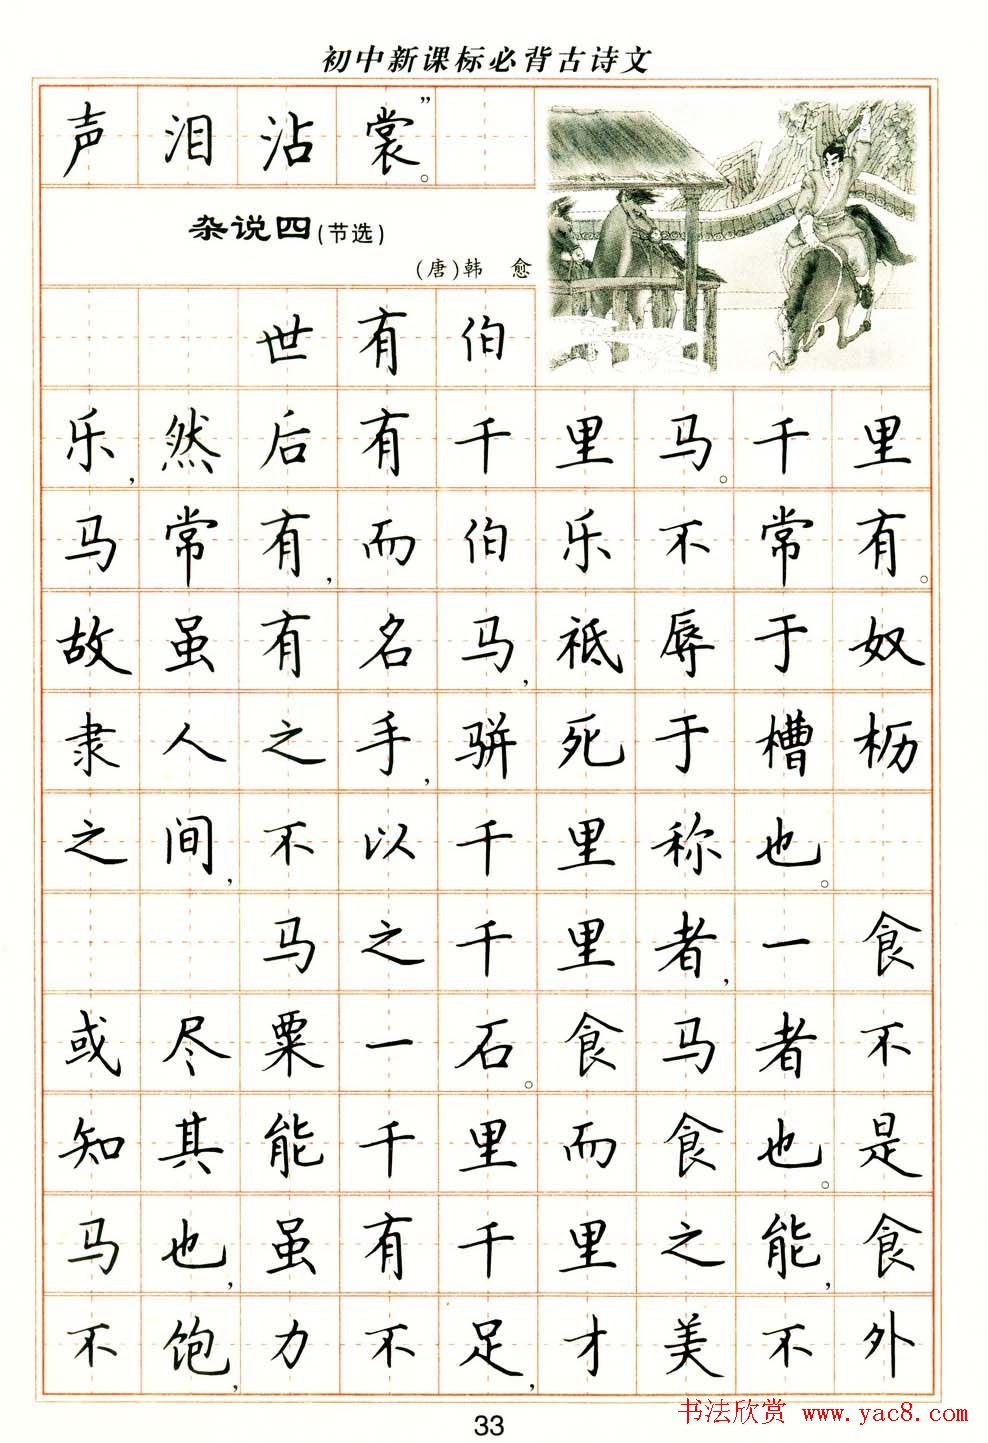 初中新课标必背古诗文
声泪沾裳。”
杂说四(节选)
(唐)韩 愈
世有伯
乐,然后有千里马。千里
马常有,而伯乐不常有。
故虽有名马,祗辱于奴
隶人之手,骈死于槽枥
之间,不以千里称也。
马之千里者,一食
或尽粟一石。食马者不
知其能千里而食也。是
马也,虽有千里之能,食
不饱,力不足,才美不外
33
书法欣赏 www.yac8.com